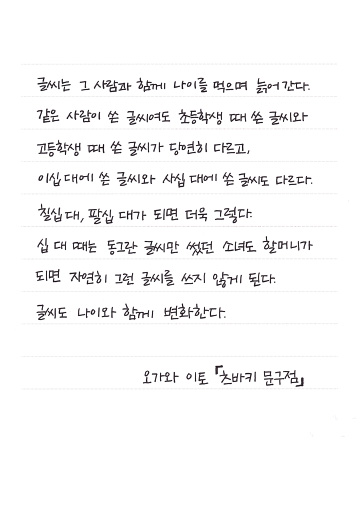 글씨는 그 사람과 함께 나이를 먹으며 늙어간다.
같은 사람이 쓴 글씨여도 초등학생 때 쓴 글씨와
고등학생 때 쓴 글씨가 당연히 다르고,
이십 대에 쓴 글씨와 사십 대에 쓴 글씨도 다르다.
칠십 대, 팔십 대가 되면 더욱 그렇다.
십 대 때는 동그란 글씨만 썼던 소녀도 할머니가
되면 자연히 그런 글씨를 쓰지 않게 된다.
글씨도 나이와 함께 변화한다.
오가와 이토 『츠바키 문구점』